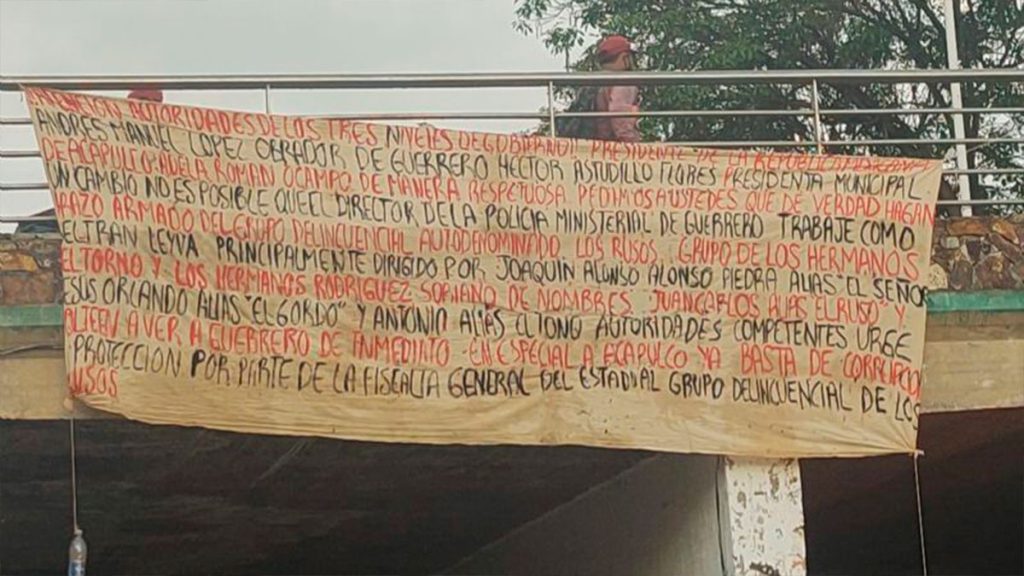 ATENCION AUTORIDADES DE LOS TRES NIVELES DE GOBIERNO PRESIDENTE DE LA REPUBLICA
ANDRES MANUEL LOPEZ OBRADOR DE GUERRERO HECTOR ASTUDILLO FLORES PRESIDENTA MUNICIPAL
DE ACAPULCO ADELA ROMAN OCAMPO DE MANERA RESPETUOSA PEDIMOS A USTEDES QUE DE VERDAD HAGAN
UN CAMBIO NO ES POSIBLE QUE EL DIRECTOR DE LA POLICIA MINISTERIAL DE GUERRERO TRABAJE COMO
RAZO ARMADO DEL GRUPO DELINCUENCIAL AUTODENOMINADO LOS RUSOS. GRUPO DE LOS HERMANOS
ELTRAN LEYVA PRINCIPALMENTE DIRIGIDO POR JOAQUIN ALONSO ALONSO PIEDRA ALIAS EL SEÑOR
EL TORNO Y LOS HERMANOS RODRIGUEZ SORIANO DE NOMBRES. JUAN CARLOS ALIAS EL RUSO" Y
ESUS ORLANDO ALIAS "EL GORDO" Y ANTONIO ALIAS EL TONO AUTORIDADES COMPETENTES URGE
VOLTEEN A VER A GUERRERO DE INMEDIATO. EN ESPECIAL A ACAPULCO YA BASTA DE CORRUPCIO
PROTECCION POR PARTE DE LA FISCALIA GENERAL DEL ESTADI AL GRUPO DELINCUENCIAL DE LOS
USOS